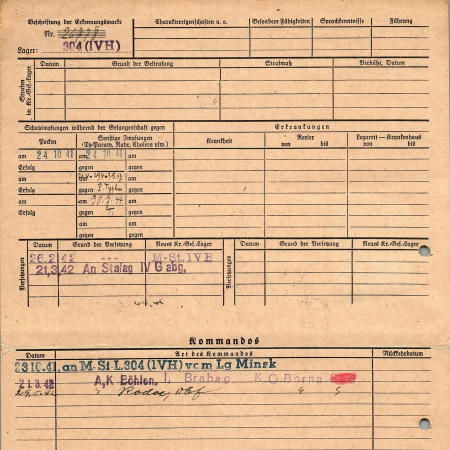 Beschriftung der Erkennungsmarke
Nr.
Lager: 304 (IVH)
Charaktereigenschaften u. a.
Besondere Fähigkeiten
Sprachkenntnisse
Führung
Strafen im Kr.-Gef.-Lager
Datum
Grund der Bestrafung
Strafmaß
Verbüßt, Datum
Schutzimpfungen während der Gefangenschaft gegen
Erkrankungen
Pocken
Sonstige Impfungen (Ty-Paraty, Ruhr, Cholera usw.)
Krankheit
Revier
von bis
Lazarett — Krankenhaus
von bis
am 24 10. 41 am 24 10. 41 am
Erfolg gegen gegen
am am am
Erfolg gegen gegen
am am am
Erfolg gegen gegen
am am
gegen gegen
am am
gegen gegen
Versetzungen
Datum
Grund der Versetzung
Neues Kr.-Gef.-Lager
26.2.42 --- M-St.IVB
21,3.42 An Stalag IV G abg.
Versetzungen
Datum
Grund der Versetzung
Neues Kr.-Gef.-Lager
Kommandos
Datum
Art des Kommandos
Rückkehrdatum
23 10. 41, an M-St-L.304 (IVH) vom Lg Minsk
21.3.42 A,K Böhlen, Brabag K.O.Borna